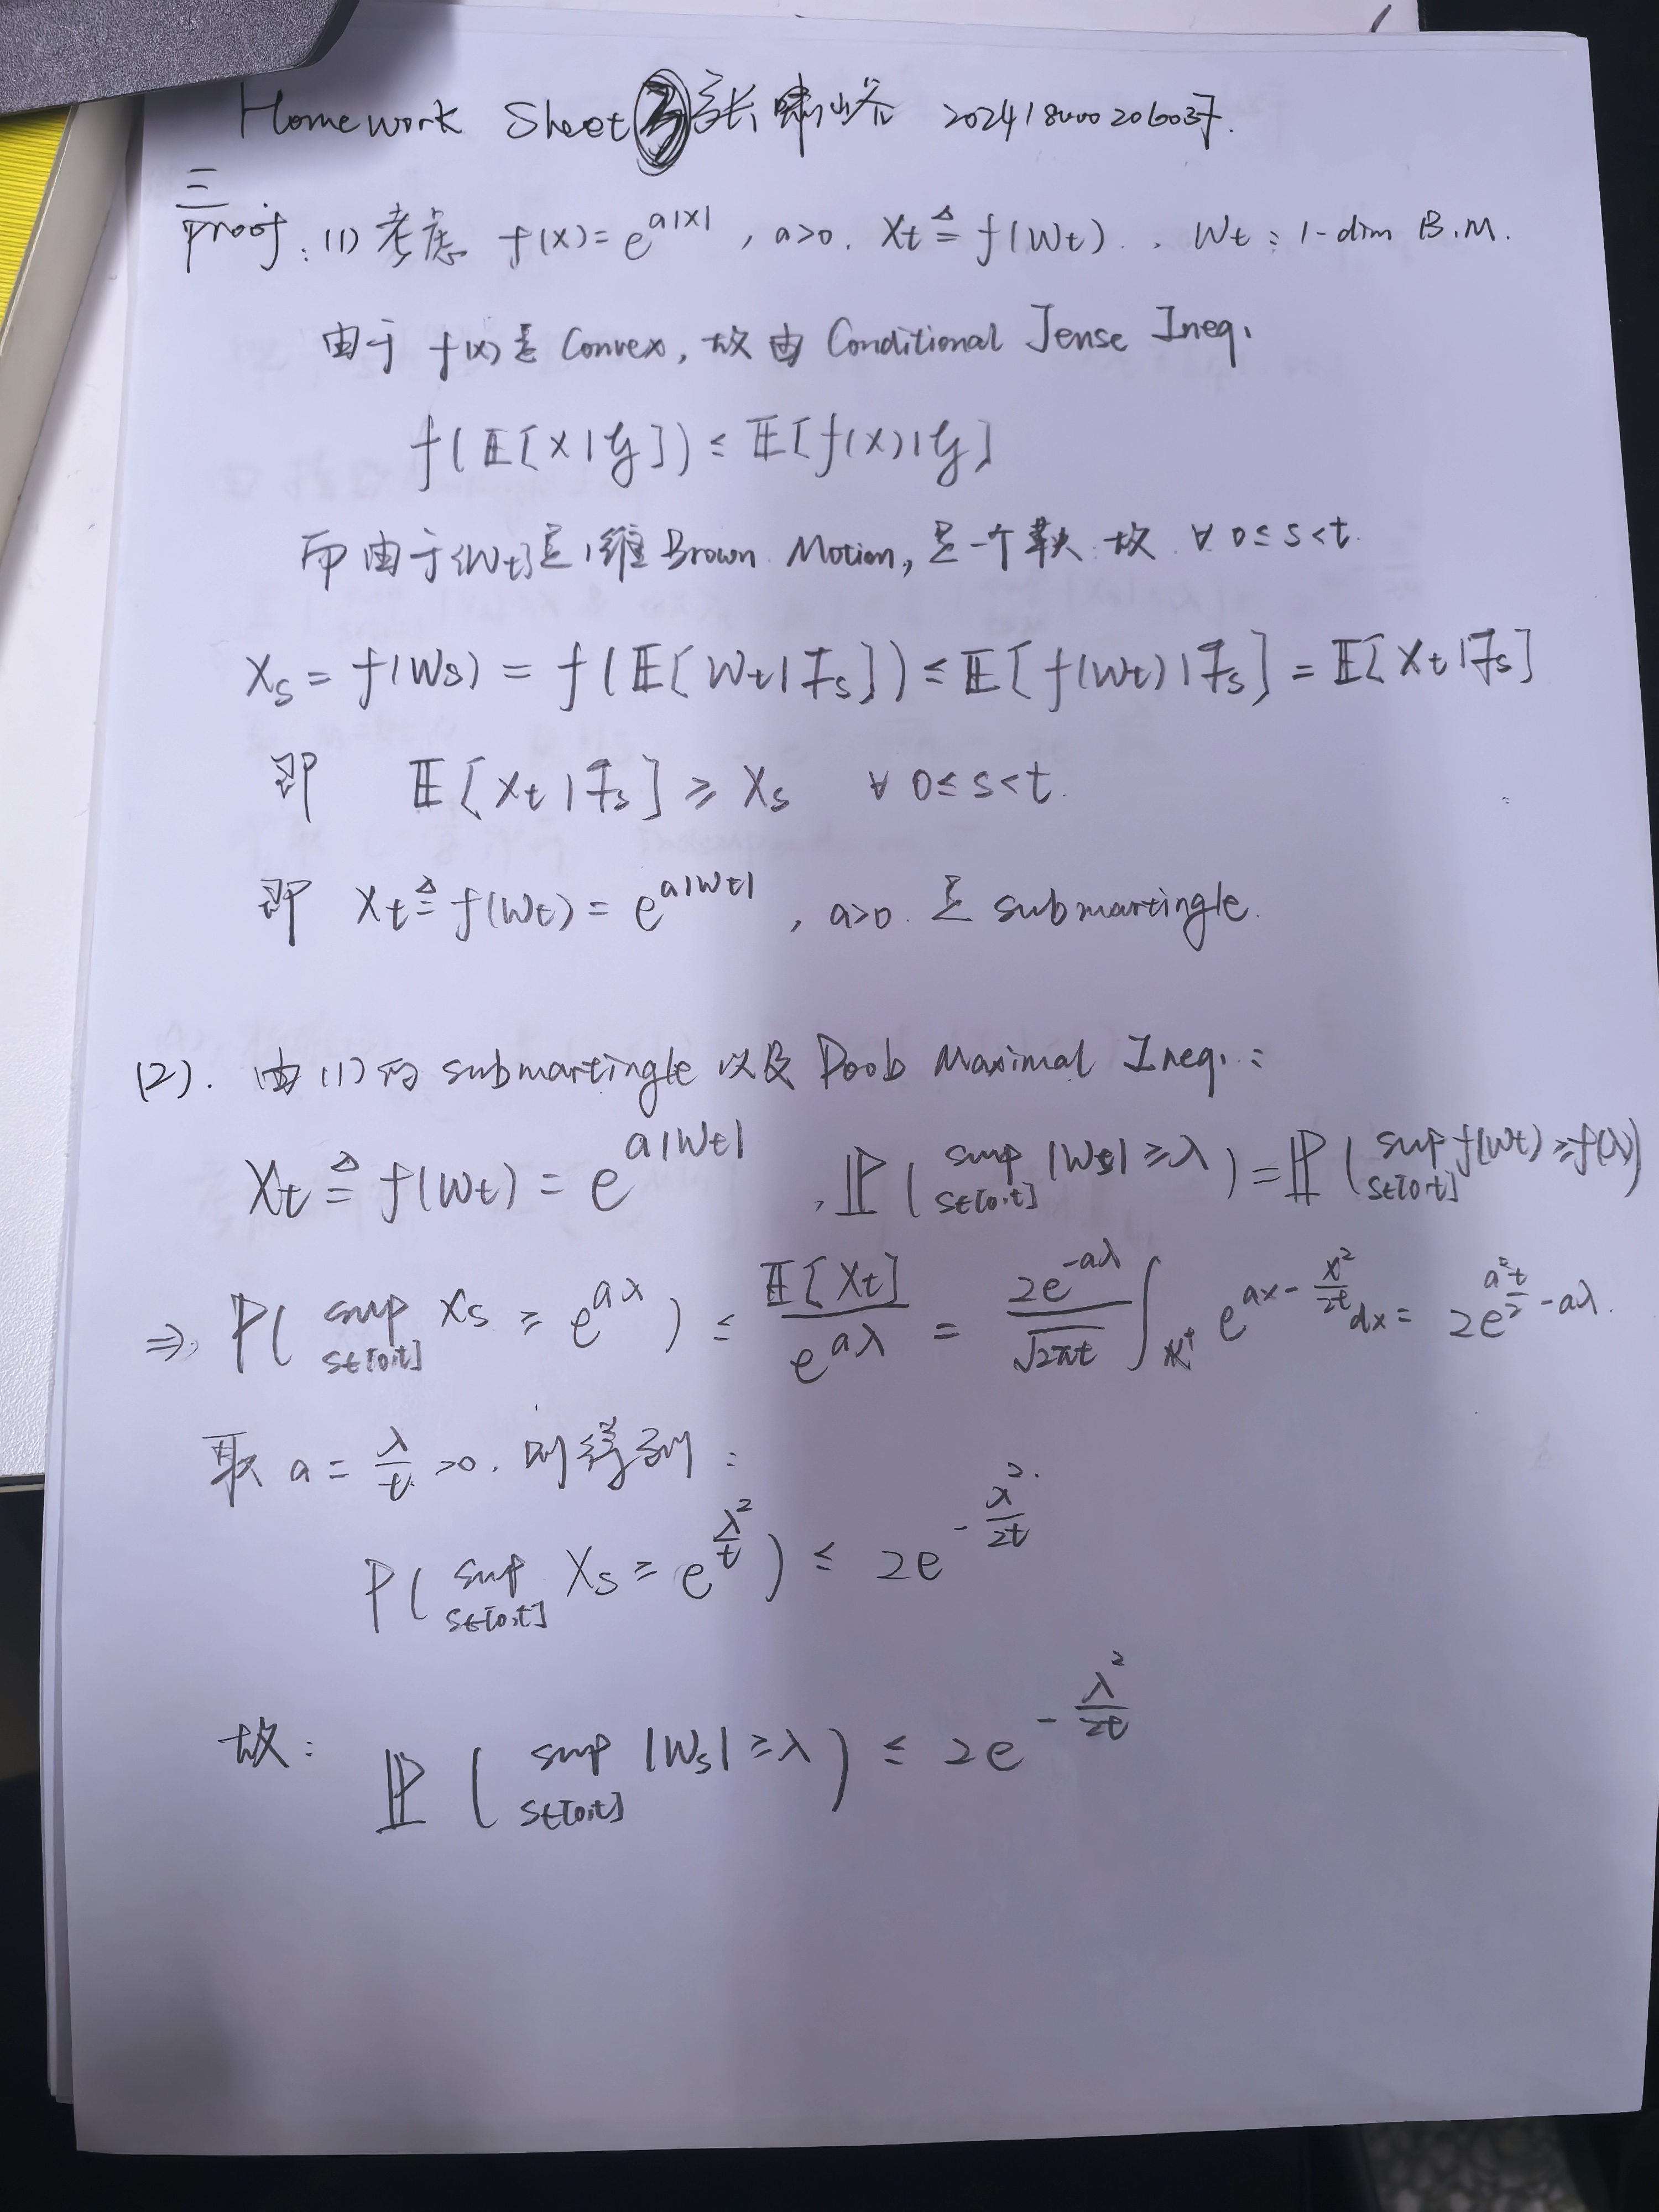 Homework Sheet 3 张啸峪
三
proof: (1) 考虑 f(x) = e^{a|x|}, a>0. X_t ≜ f(W_t). , W_t : 1-dim B.M.
由于 f(x) 是 Convex, 故由 Conditional Jense Ineq.
f(𝔼[X|𝒢]) ≤ 𝔼[f(X)|𝒢]
而由于{W_t}是1维 Brown Motion, 是一个鞅. 故 ∀ 0≤s<t.
X_s = f(W_s) = f(𝔼[W_t|ℱ_s]) ≤ 𝔼[f(W_t)|ℱ_s] = 𝔼[X_t|ℱ_s]
即 𝔼[X_t|ℱ_s] ≥ X_s ∀ 0≤s<t.
即 X_t ≜ f(W_t) = e^{a|W_t|}, a>0. 是 submartingle.
(2). 由 (1) 的 submartingle 以及 Doob Maximal Ineq.:
X_t ≜ f(W_t) = e^{a|W_t|} , ℙ( sup_{s∈[0,t]} |W_s| ≥ λ ) = ℙ( sup_{s∈[0,t]} f(W_t) ≥ f(λ) )
⇒ P( sup_{s∈[0,t]} X_s ≥ e^{aλ} ) ≤ 𝔼[X_t]/e^{aλ} = 2e^{-aλ}/√(2πt) ∫_{ℝ⁺} e^{ax - x²/2t} dx = 2e^{a²t/2 - aλ}.
取 a = λ/t >0. 则得到:
P( sup_{s∈[0,t]} X_s ≥ e^{λ²/t} ) ≤ 2e^{-λ²/2t}.
故: ℙ( sup_{s∈[0,t]} |W_s| ≥ λ ) ≤ 2e^{-λ²/2t}